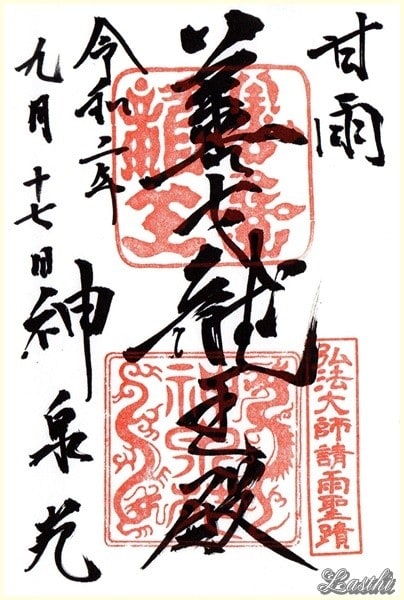 甘雨
善女龍王殿
令和二年
九月十七日
神泉苑
善女龍王
弘法大師請雨聖蹟
Lasthi